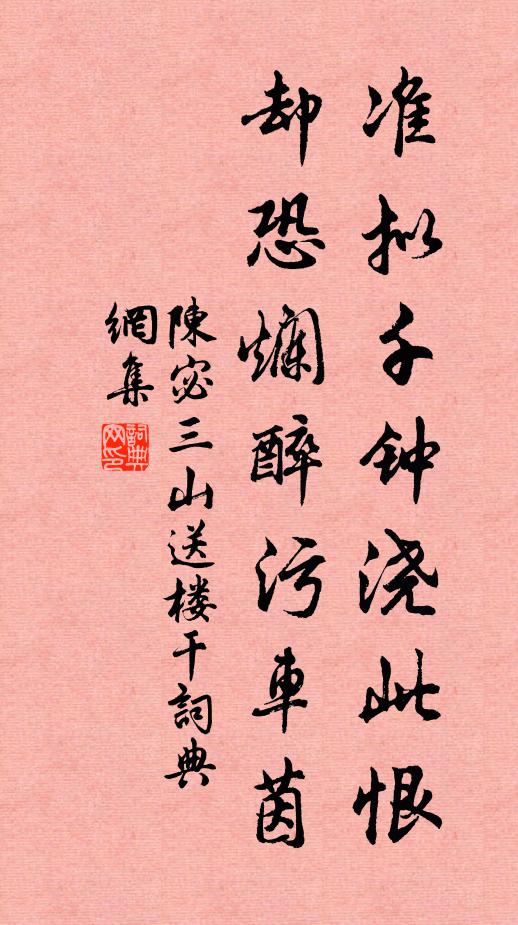 准拟千钟浇此恨
却恐爛醉污車茵
陳宓三山送楼干詞典
網集
詞典网印